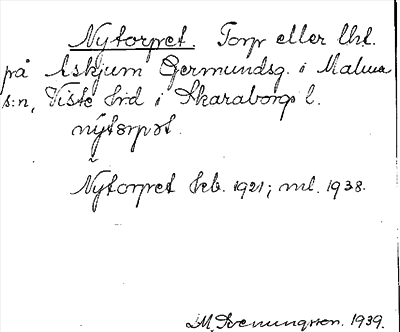 Nytorpet. Torp eller lht.
på Askjum Germundsg. i Malma
s:n, Viste hrd i Skaraborgs l.
nýtɷrpət.
~
Nytorpet Feb. 1921; ml. 1938.
D.M. Svenungsson. 1939.